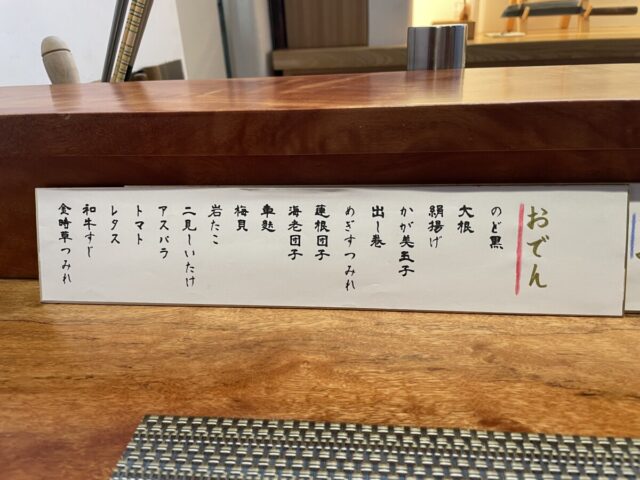 おでん
のど黒
大根
絹揚げ
かが美玉子
出し巻
めぎすつみれ
蓮根団子
海老団子
車麩
梅貝
岩たこ
二見しいたけ
アスパラ
トマト
レタス
和牛すじ
金時草つみれ